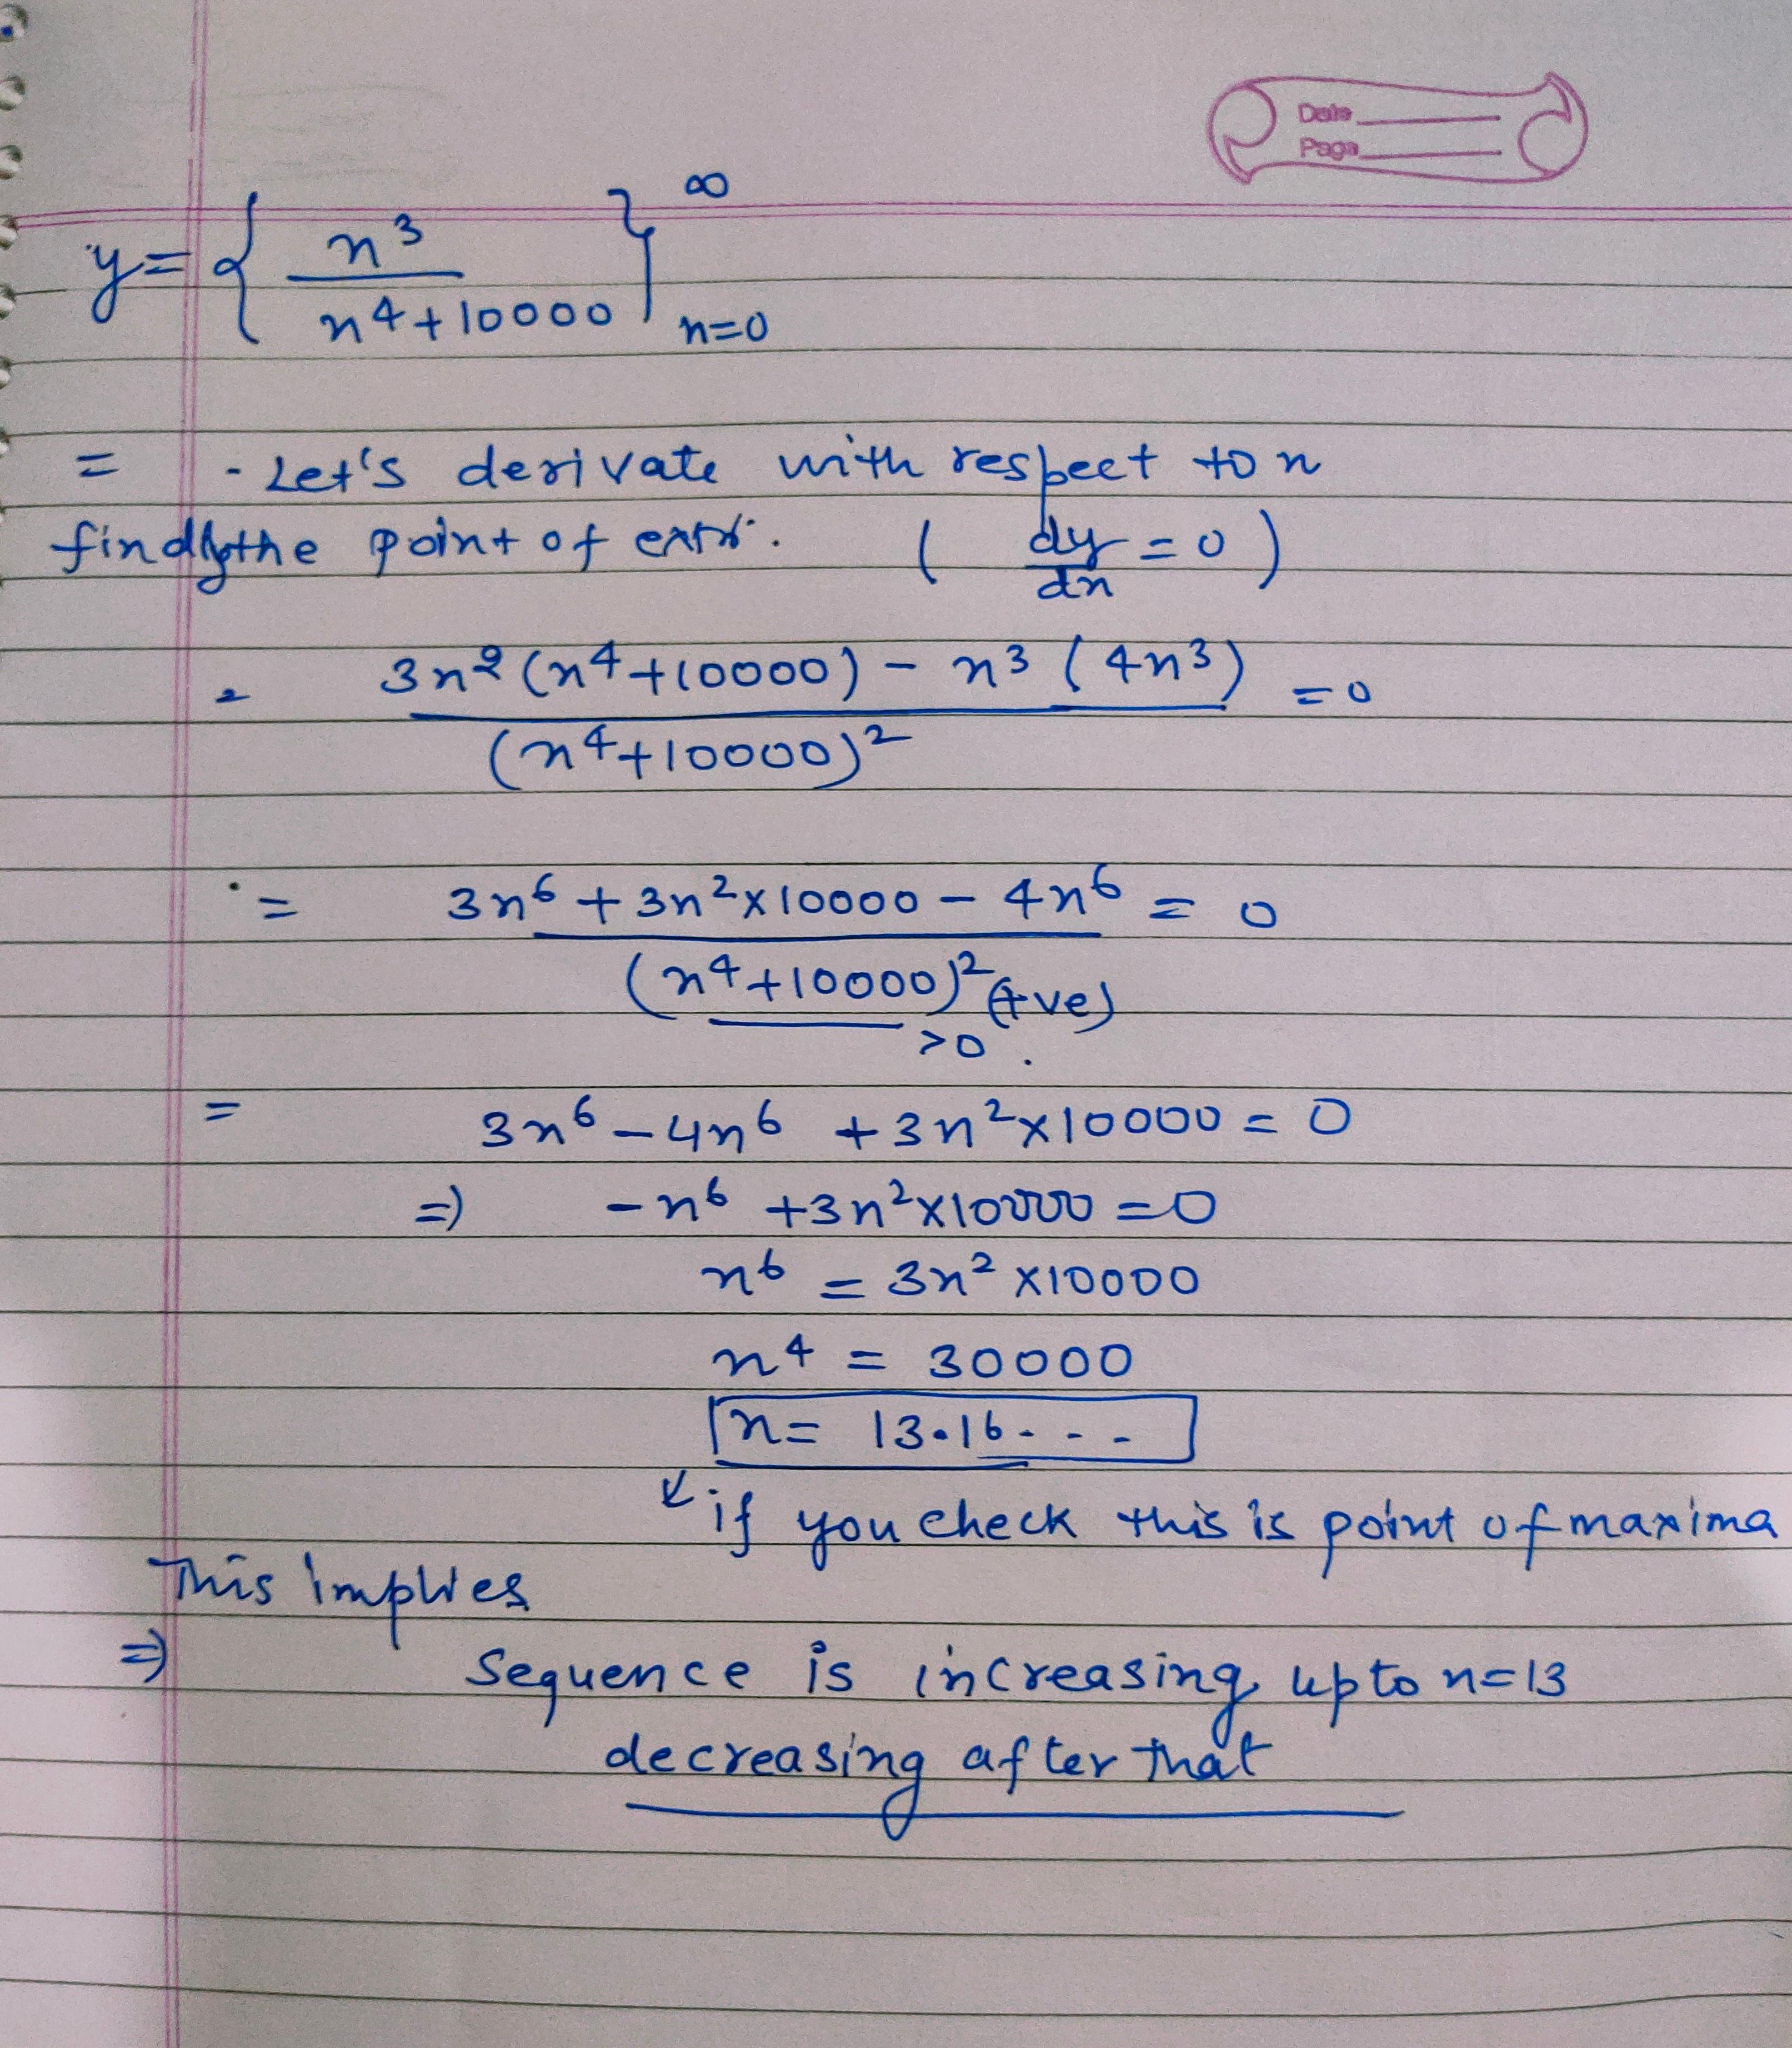 Date
Page
y = { n³ / n⁴+10000 }^∞ n=0
= - Let's derivate with respect to n
find the point of (dy/dn = 0)
= 3n²(n⁴+10000) - n³(4n³) / (n⁴+10000)² = 0
= 3n⁶ + 3n²×10000 - 4n⁶ / (n⁴+10000)² (+ve) = 0
>0
= 3n⁶ - 4n⁶ + 3n²×10000 = 0
=) -n⁶ + 3n²×10000 = 0
n⁶ = 3n² ×10000
n⁴ = 30000
n = 13.16. - - -
if you check this is point of maxima
This implies
=) Sequence is increasing upto n=13
decreasing after that